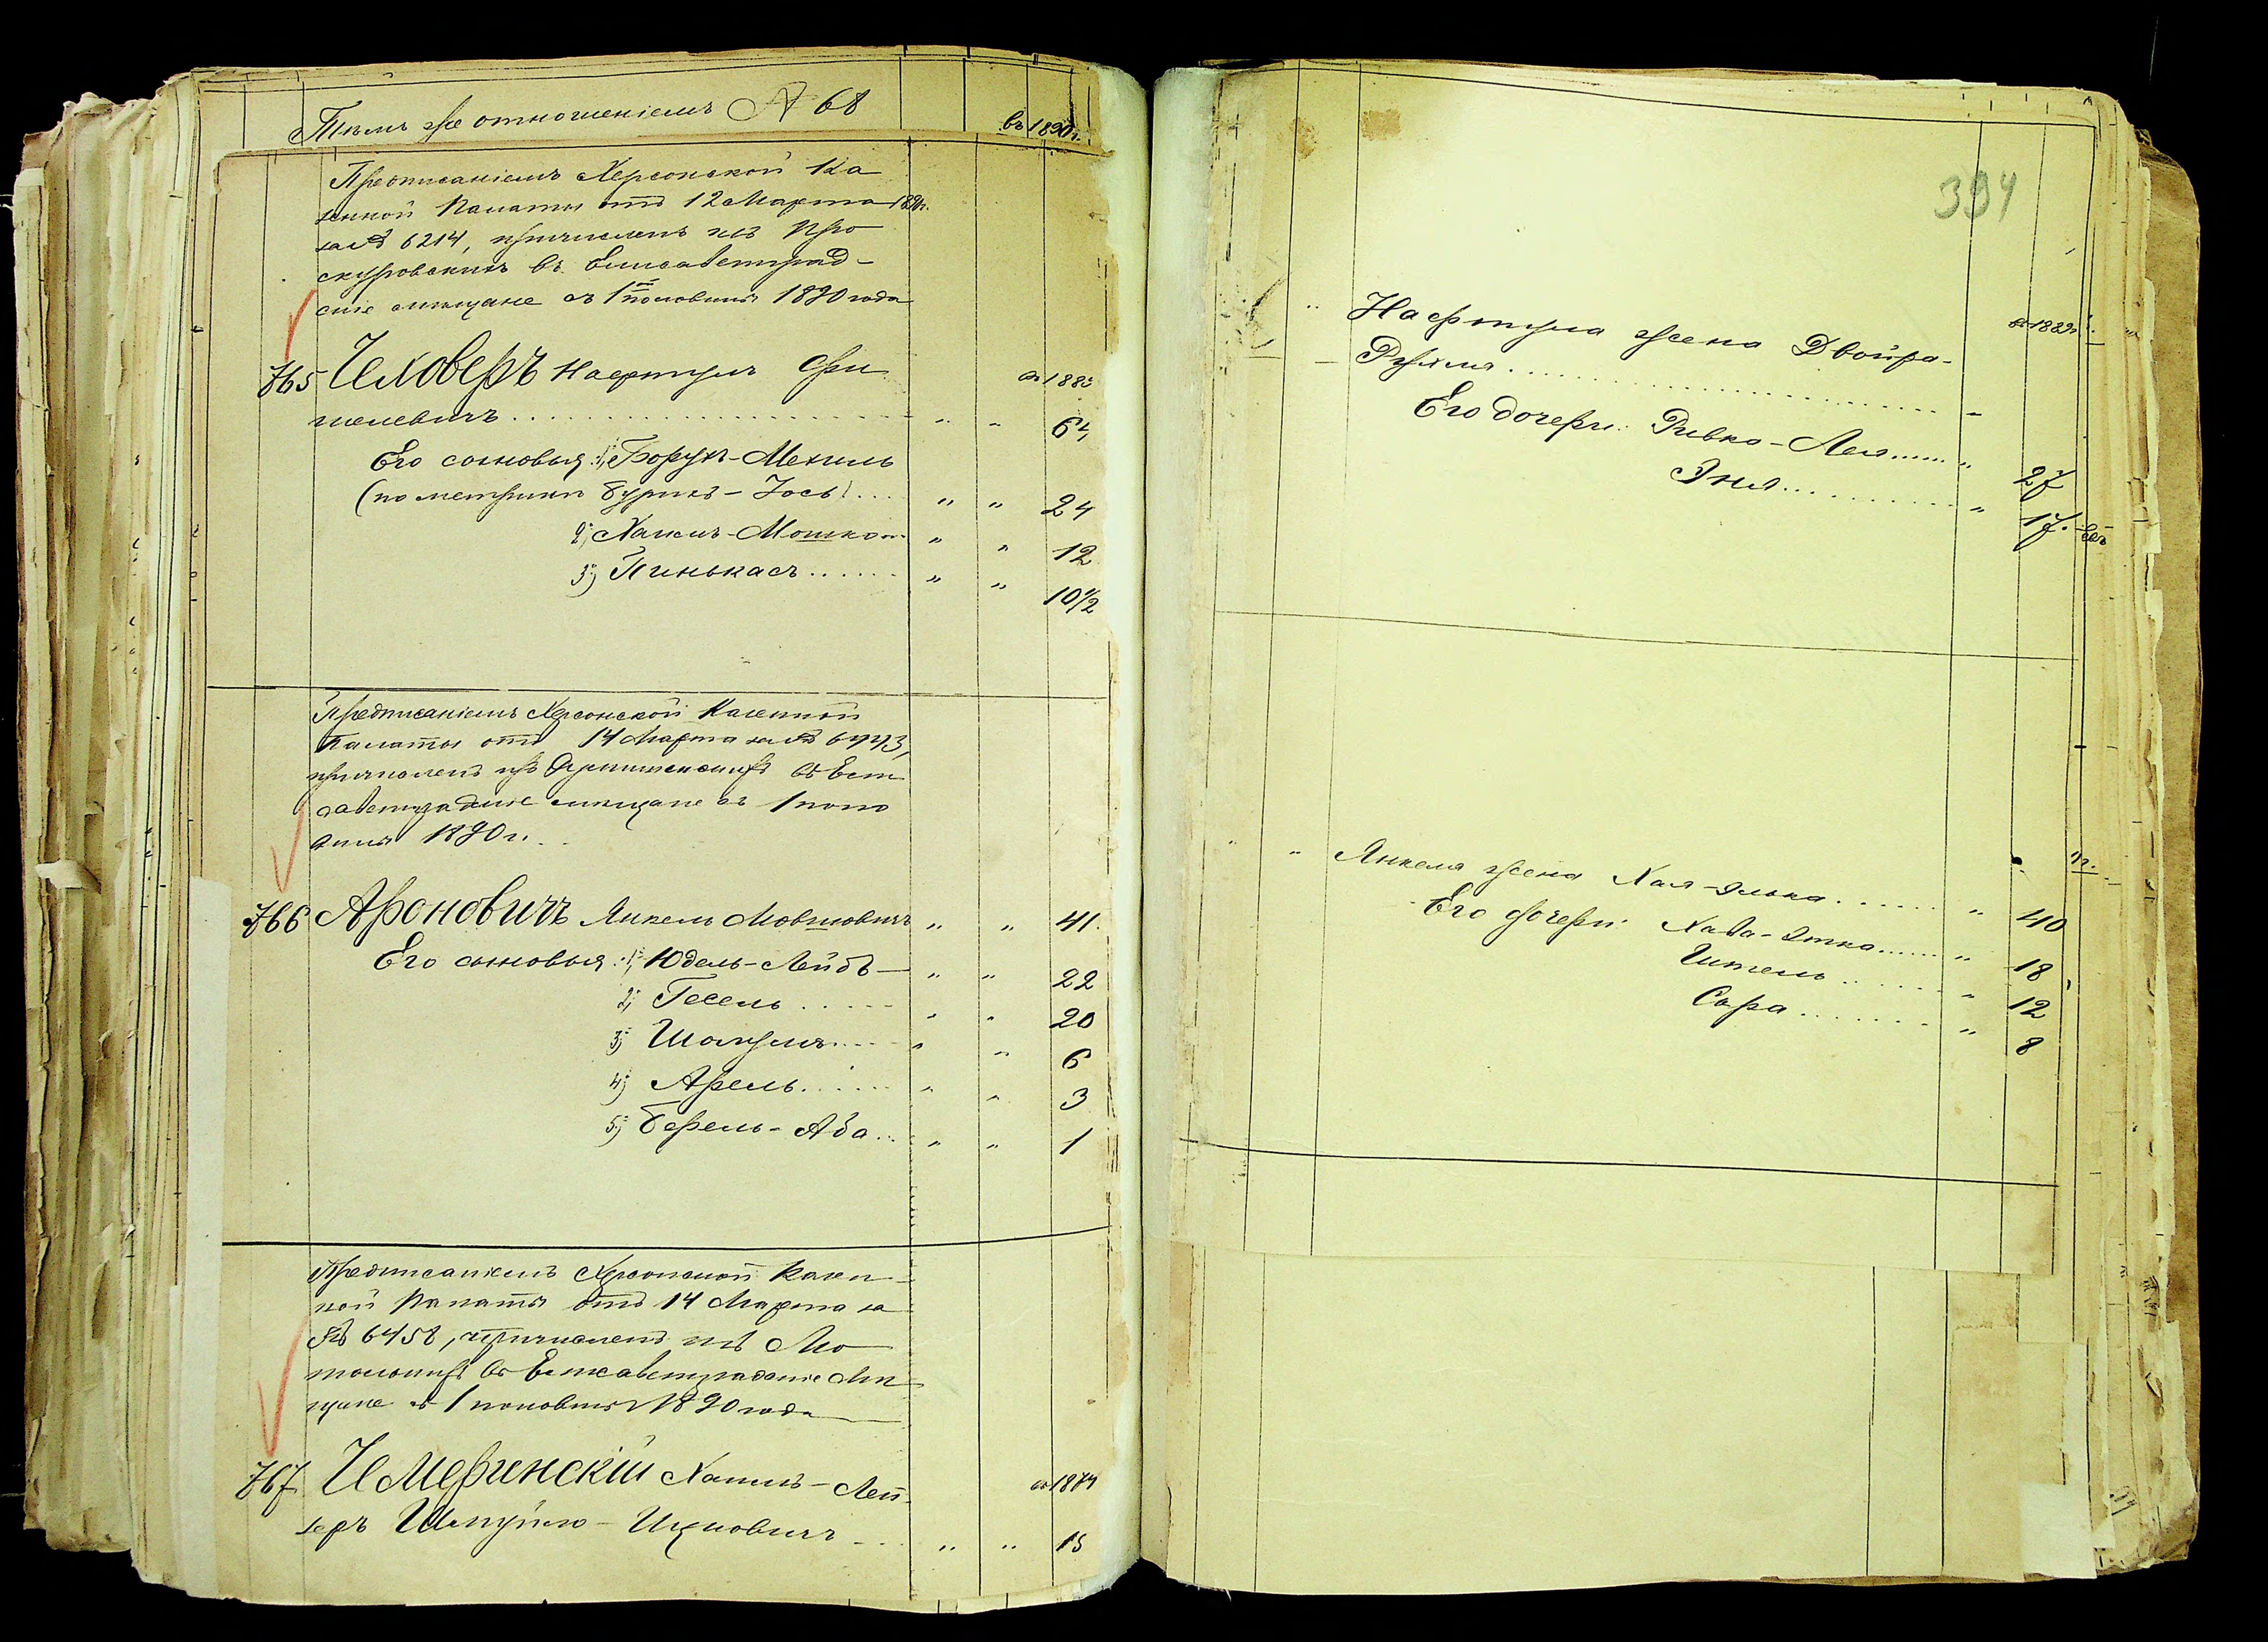 Тѣмъ же отношеніемъ № 68
въ 1890 г.
Предписаніемъ Херсонской Ка
зенной Палаты отъ 12 Марта 1890 г.
за № 6214, причисленъ изъ Про
скуровскихъ въ Елисаветград-
скіе мѣщане съ 1й половины 1890 года
765 Чеховеръ Нафтулъ Фи
шелевичъ . . . . . . " "
въ 188
64
Его сыновья: 1, Борухъ-Мехиль
(по метрики Бурихъ-Іось) . . . " " 24
2, Хаимъ-Мошко " " 12
3, Пинькасъ . . . . . . " " 10 1/2
Предписаніемъ Херсонской Казенной
Палаты отъ 14 Марта за № 6443,
причисленъ изъ въ Ели
саветградскіе мѣщане съ 1 поло
вины 1890 г.
766 Ароновичъ Янкель Мовшовичъ " " 41.
Его сыновья: 1, Юдель-Лейбъ " " 22
2, Гесель . . . . . " " 20
3, Шомулъ . . . . " " 6
4, Арель . . . . . . " " 3
5, Берель-Аба . . . " " 1
Предписаніемъ Херсонской Казен
ной Палаты отъ 14 Марта за
№ 6458, причисленъ изъ
въ Елисаветградскіе мѣ
щане съ 1 половины 1890 года
767 Чемеринскій Хаимъ-Лей-
зеръ Шмуйло-Ицковичъ " "
въ 1874
15
394
" Нафтула жена Двойра-
въ 1889 г.
Рухля . . . . . . . . . . . .
Его дочери: Ривка-Лея . . . . . " 27
Эня . . . . . . . . . . " 17.
" Янкеля жена Хая-Элька . . . . . . " 40
Его дочери: Хава-Этка . . . . . " 18
Штель . . . . . . " 12
Сара . . . . . . . " 8